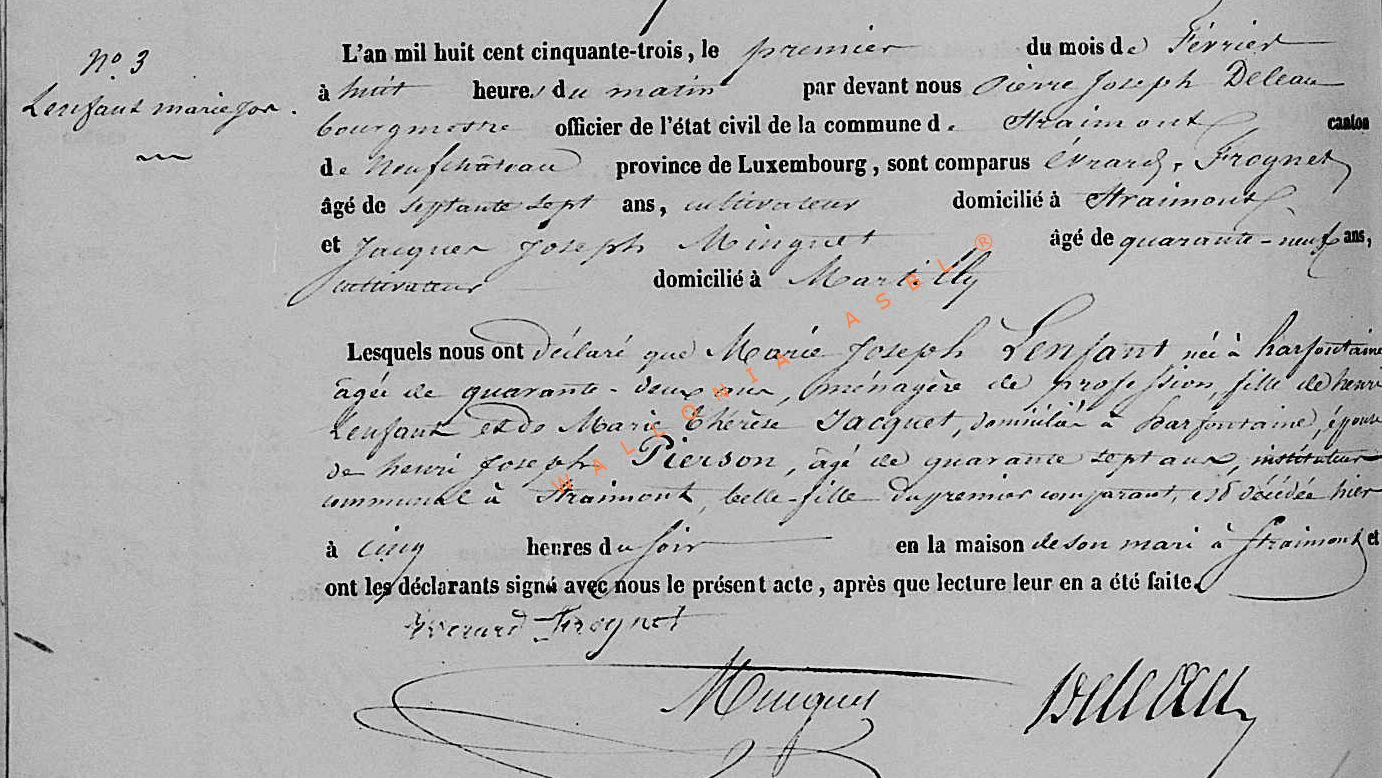 N.o 3
Lenfant marie Jos.
L'an mil huit cent cinquante-trois, le premier du mois de Février
à huit heures du matin par devant nous Pierre Joseph Deleau
bourgmestre officier de l'état civil de la commune de Straimont canton
de Neufchâteau province de Luxembourg, sont comparus Évrard Frognet
âgé de septante sept ans, cultivateur domicilié à Straimont
et Jacques Joseph Minguet âgé de quarante-neuf ans,
cultivateur domicilié à Martilly
Lesquels nous ont déclaré que Marie Joseph Lenfant, née à harfontaine
âgée de quarante-deux ans, ménagère de profession, fille de henri
Lenfant et de Marie Thérèse Jacquet, domiciliée à harfontaine, épouse
de henri Joseph Pierson, âgé de quarante sept ans, instituteur
communal à Straimont, belle-fille du premier comparant, est décédée hier
à cinq heures du soir en la maison de son mari à Straimont et
ont les déclarants signé avec nous le présent acte, après que lecture leur en a été faite.
Everard Frognet
Minguet Deleau
WALLONIA ASBL ®